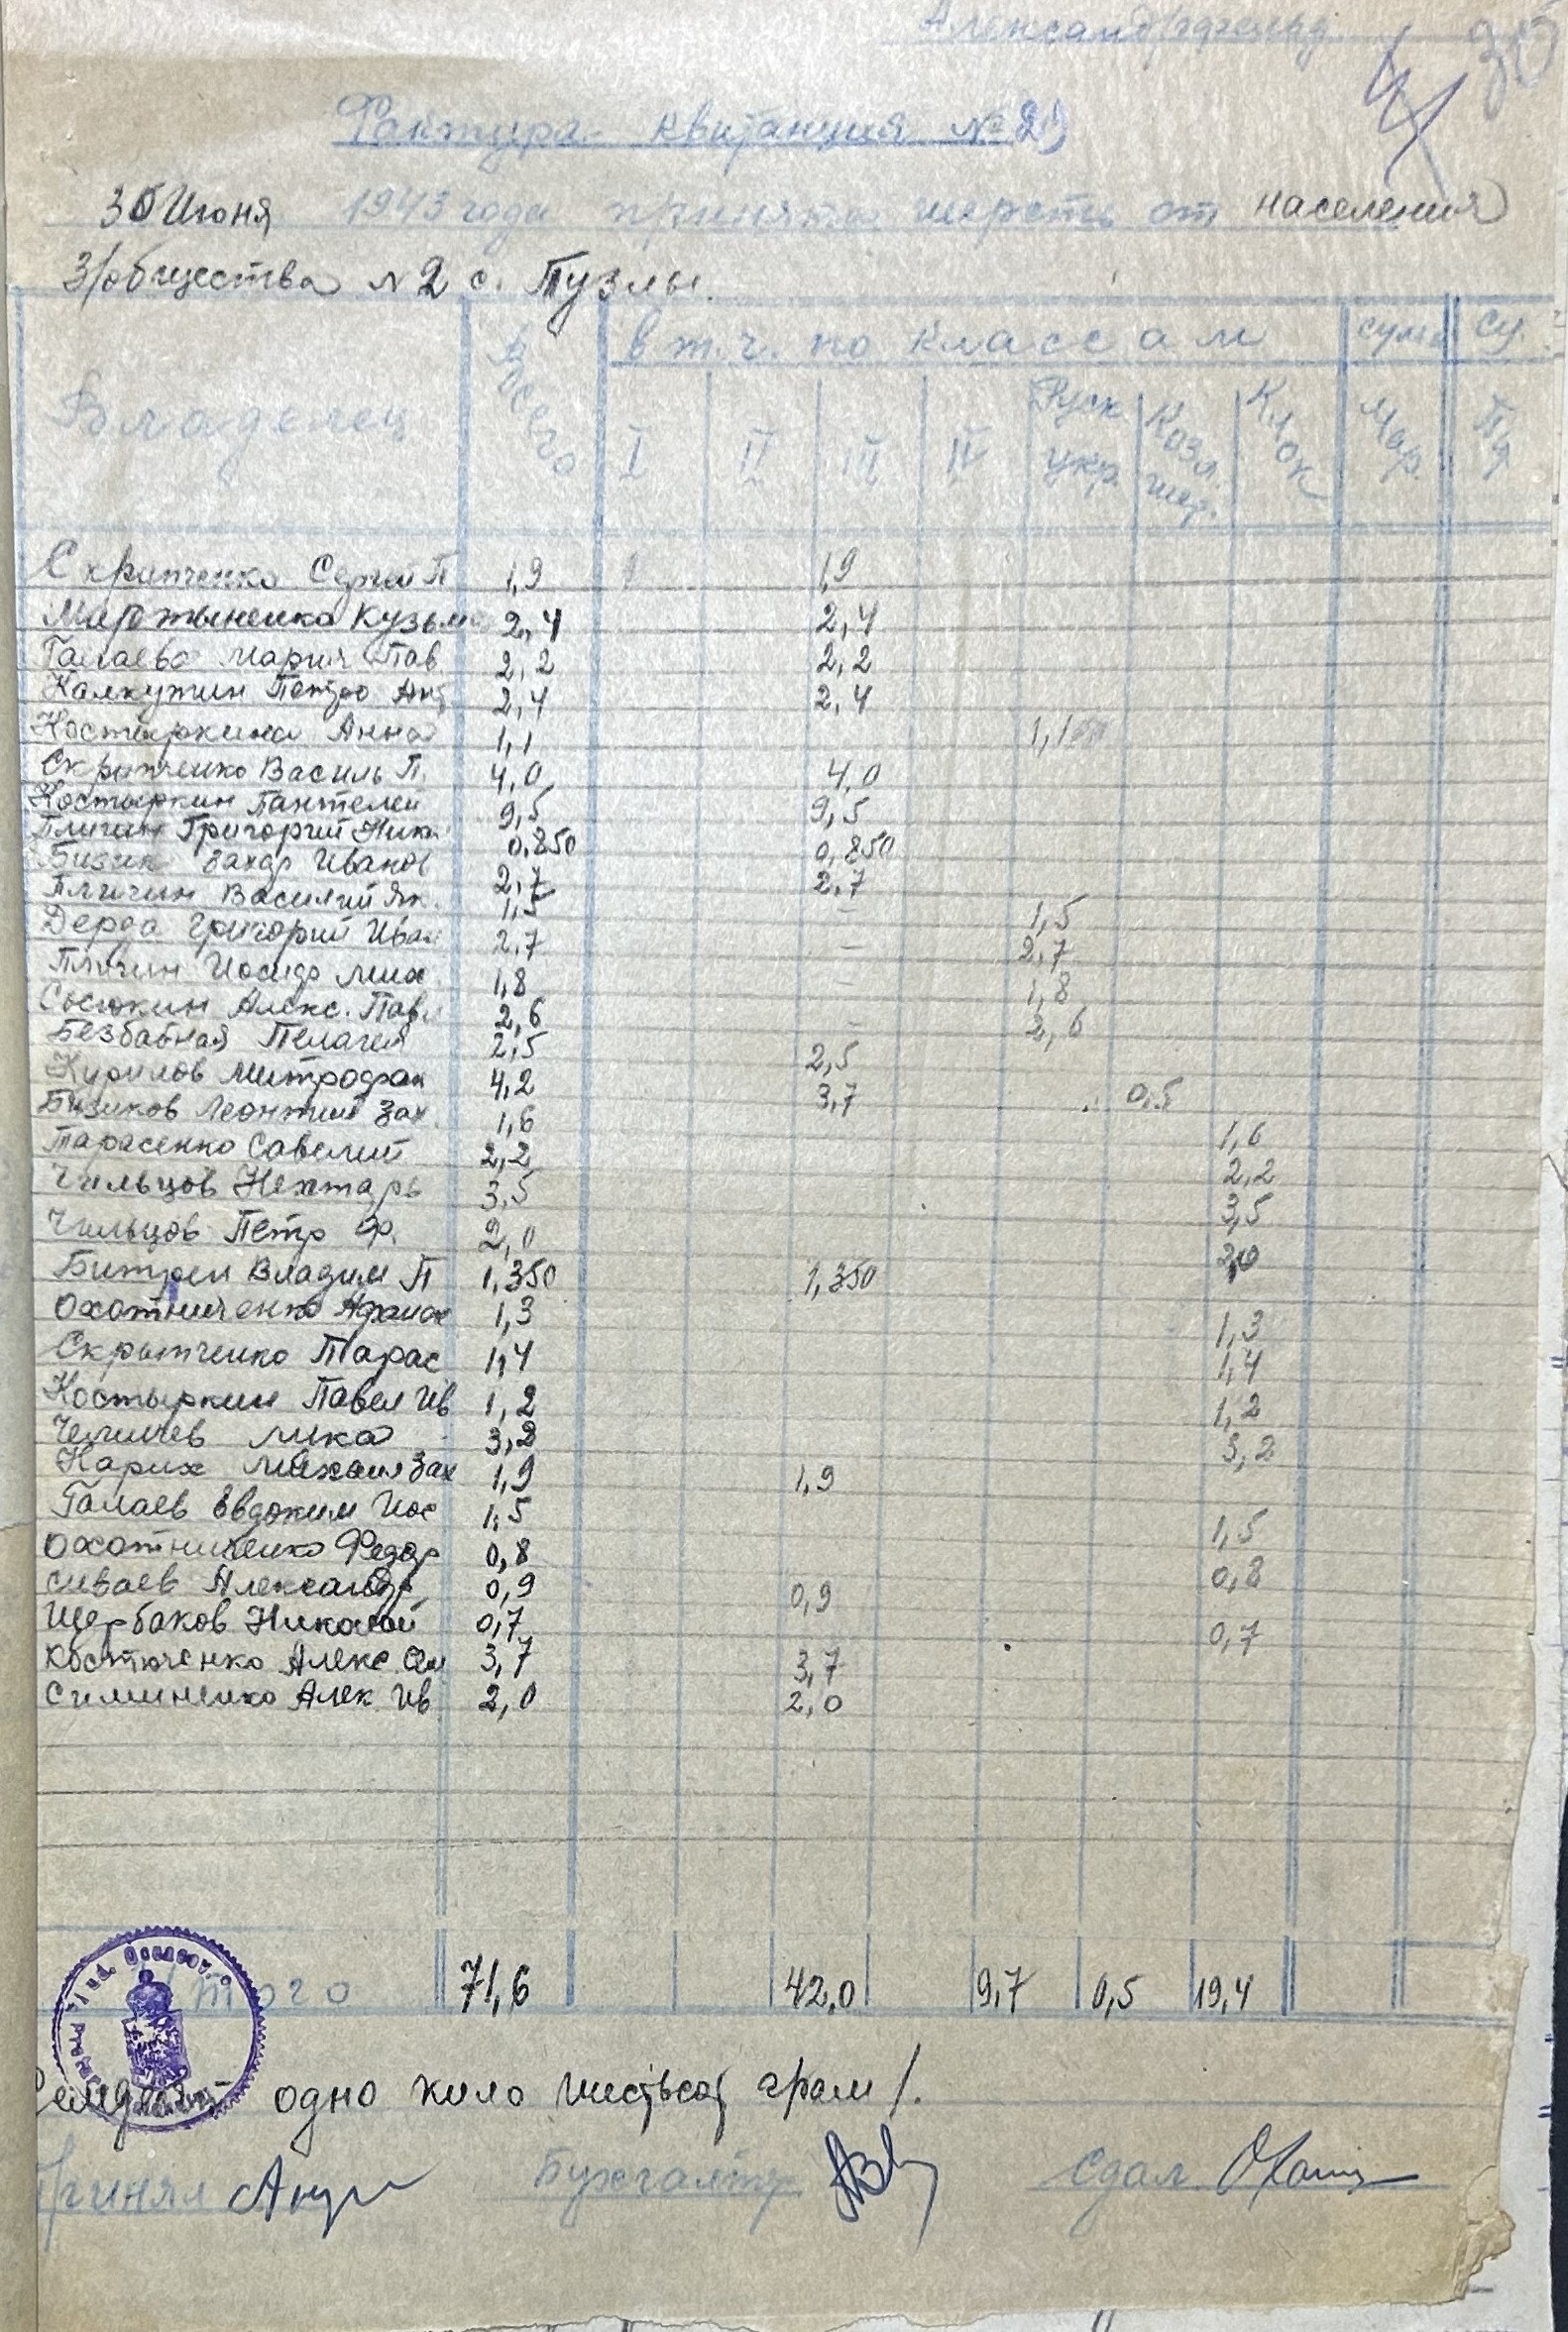 Александрфельд 30
Фактура-квитанция № 2
30 Июня 1943 года принята шерсть от населения
З/общества №2 с. Тузлы.
Владелец Всего в т.ч. по классам сума су.
I II III IV Руск укр. Козл. шер. Клок Мар. Пф
Скрипченко Сергей П 1,9 1,9
Мартыненко Кузьма 2,4 2,4
Галаева Мария Пав 2,2 2,2
Калкутин Петро Ант 2,4 2,4
Костыркина Анна 1,1 1,1
Скрипченко Василь П. 4,0 4,0
Костыркин Пантелей 9,5 9,5
Пличин Григорий Ник. 0.850 0,850
Бизик Захар Иванов 2,7 2,7
Пличин Василий Як. 1,5 – 1,5
Дерда Григорий Иван 2,7 – 2,7
Пличин Иосиф Мих. 1,8 – 1,8
Сысюкин Алекс. Павл 2,6 – 2,6
Безбабная Пелагея 2,5 2,5
Курилов Митрофан 4,2 3,7 0,5
Бизиков Леонтий Зах. 1,6 1,6
Тарасенко Савелий 2,2 2,2
Чильцов Нехтарь 3,5 3,5
Чильцов Петр Ф. 2,0 2,0
Владим П 1,350 1,350
Охотниченко 1,3 1,3
Скрыпченко Тарас 1,4 1,4
Костыркин Павел Ив 1,2 1,2
Лика 3,2 3,2
Карих Михаил Зах 1,9 1,9
Галаев Евдоким Иос 1,5 1,5
Охотниченко Федор 0,8 0,8
Сиваев Александр 0,9 0,9
Щербаков Николай 0,7 0,7
Костюченко Алекс. Сем 3,7 3,7
Симиненко Алек Ив 2,0 2,0
Итого 71,6 42,0 9,7 0,5 19,4
Семдесят одно кило шестьсот грам /.
Принял Бухгалтер Сдал